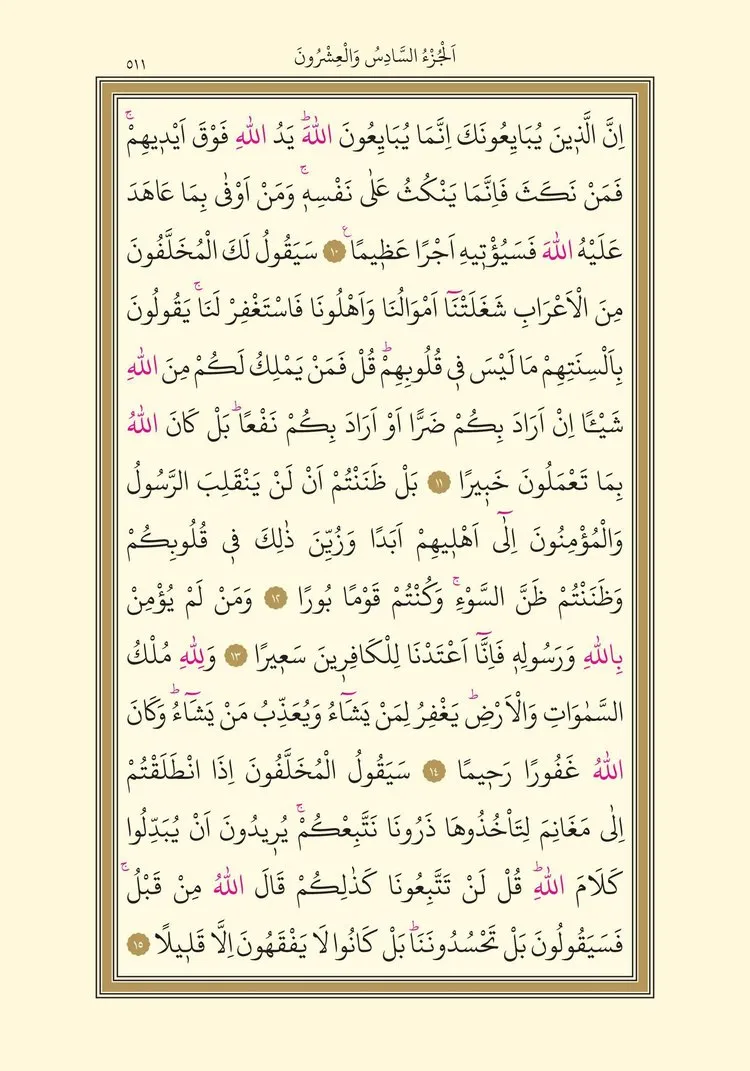 اَلْجُزْءُ السَّادِسُ وَالْعِشْرُونَ
٥١١
اِنَّ الَّذ۪ينَ يُبَايِعُونَكَ اِنَّمَا يُبَايِعُونَ اللّٰهَۜ يَدُ اللّٰهِ فَوْقَ اَيْد۪يهِمْۚ
فَمَنْ نَكَثَ فَاِنَّمَا يَنْكُثُ عَلٰى نَفْسِه۪ۚ وَمَنْ اَوْفٰى بِمَا عَاهَدَ
عَلَيْهُ اللّٰهَ فَسَيُؤْت۪يهِ اَجْرًا عَظ۪يمًا ع ﴿١٠﴾ سَيَقُولُ لَكَ الْمُخَلَّفُونَ
مِنَ الْاَعْرَابِ شَغَلَتْنَٓا اَمْوَالُنَا وَاَهْلُونَا فَاسْتَغْفِرْ لَنَاۚ يَقُولُونَ
بِاَلْسِنَتِهِمْ مَا لَيْسَ ف۪ي قُلُوبِهِمْۜ قُلْ فَمَنْ يَمْلِكُ لَكُمْ مِنَ اللّٰهِ
شَيْـًٔا اِنْ اَرَادَ بِكُمْ ضَرًّا اَوْ اَرَادَ بِكُمْ نَفْعًاۜ بَلْ كَانَ اللّٰهُ
بِمَا تَعْمَلُونَ خَب۪يرًا ﴿١١﴾ بَلْ ظَنَنْتُمْ اَنْ لَنْ يَنْقَلِبَ الرَّسُولُ
وَالْمُؤْمِنُونَ اِلٰٓى اَهْل۪يهِمْ اَبَدًا وَزُيِّنَ ذٰلِكَ ف۪ي قُلُوبِكُمْ
وَظَنَنْتُمْ ظَنَّ السَّوْءِۚ وَكُنْتُمْ قَوْمًا بُورًا ﴿١٢﴾ وَمَنْ لَمْ يُؤْمِنْ
بِاللّٰهِ وَرَسُولِه۪ فَاِنَّٓا اَعْتَدْنَا لِلْكَافِر۪ينَ سَع۪يرًا ﴿١٣﴾ وَلِلّٰهِ مُلْكُ
السَّمٰوَاتِ وَالْاَرْضِۜ يَغْفِرُ لِمَنْ يَشَٓاءُ وَيُعَذِّبُ مَنْ يَشَٓاءُۜ وَكَانَ
اللّٰهُ غَفُورًا رَح۪يمًا ﴿١٤﴾ سَيَقُولُ الْمُخَلَّفُونَ اِذَا انْطَلَقْتُمْ
اِلٰى مَغَانِمَ لِتَأْخُذُوهَا ذَرُونَا نَتَّبِعْكُمْۚ يُر۪يدُونَ اَنْ يُبَدِّلُوا
كَلَامَ اللّٰهِۜ قُلْ لَنْ تَتَّبِعُونَا كَذٰلِكُمْ قَالَ اللّٰهُ مِنْ قَبْلُۚ
فَسَيَقُولُونَ بَلْ تَحْسُدُونَنَاۜ بَلْ كَانُوا لَا يَفْقَهُونَ اِلَّا قَل۪يلًا ﴿١٥﴾